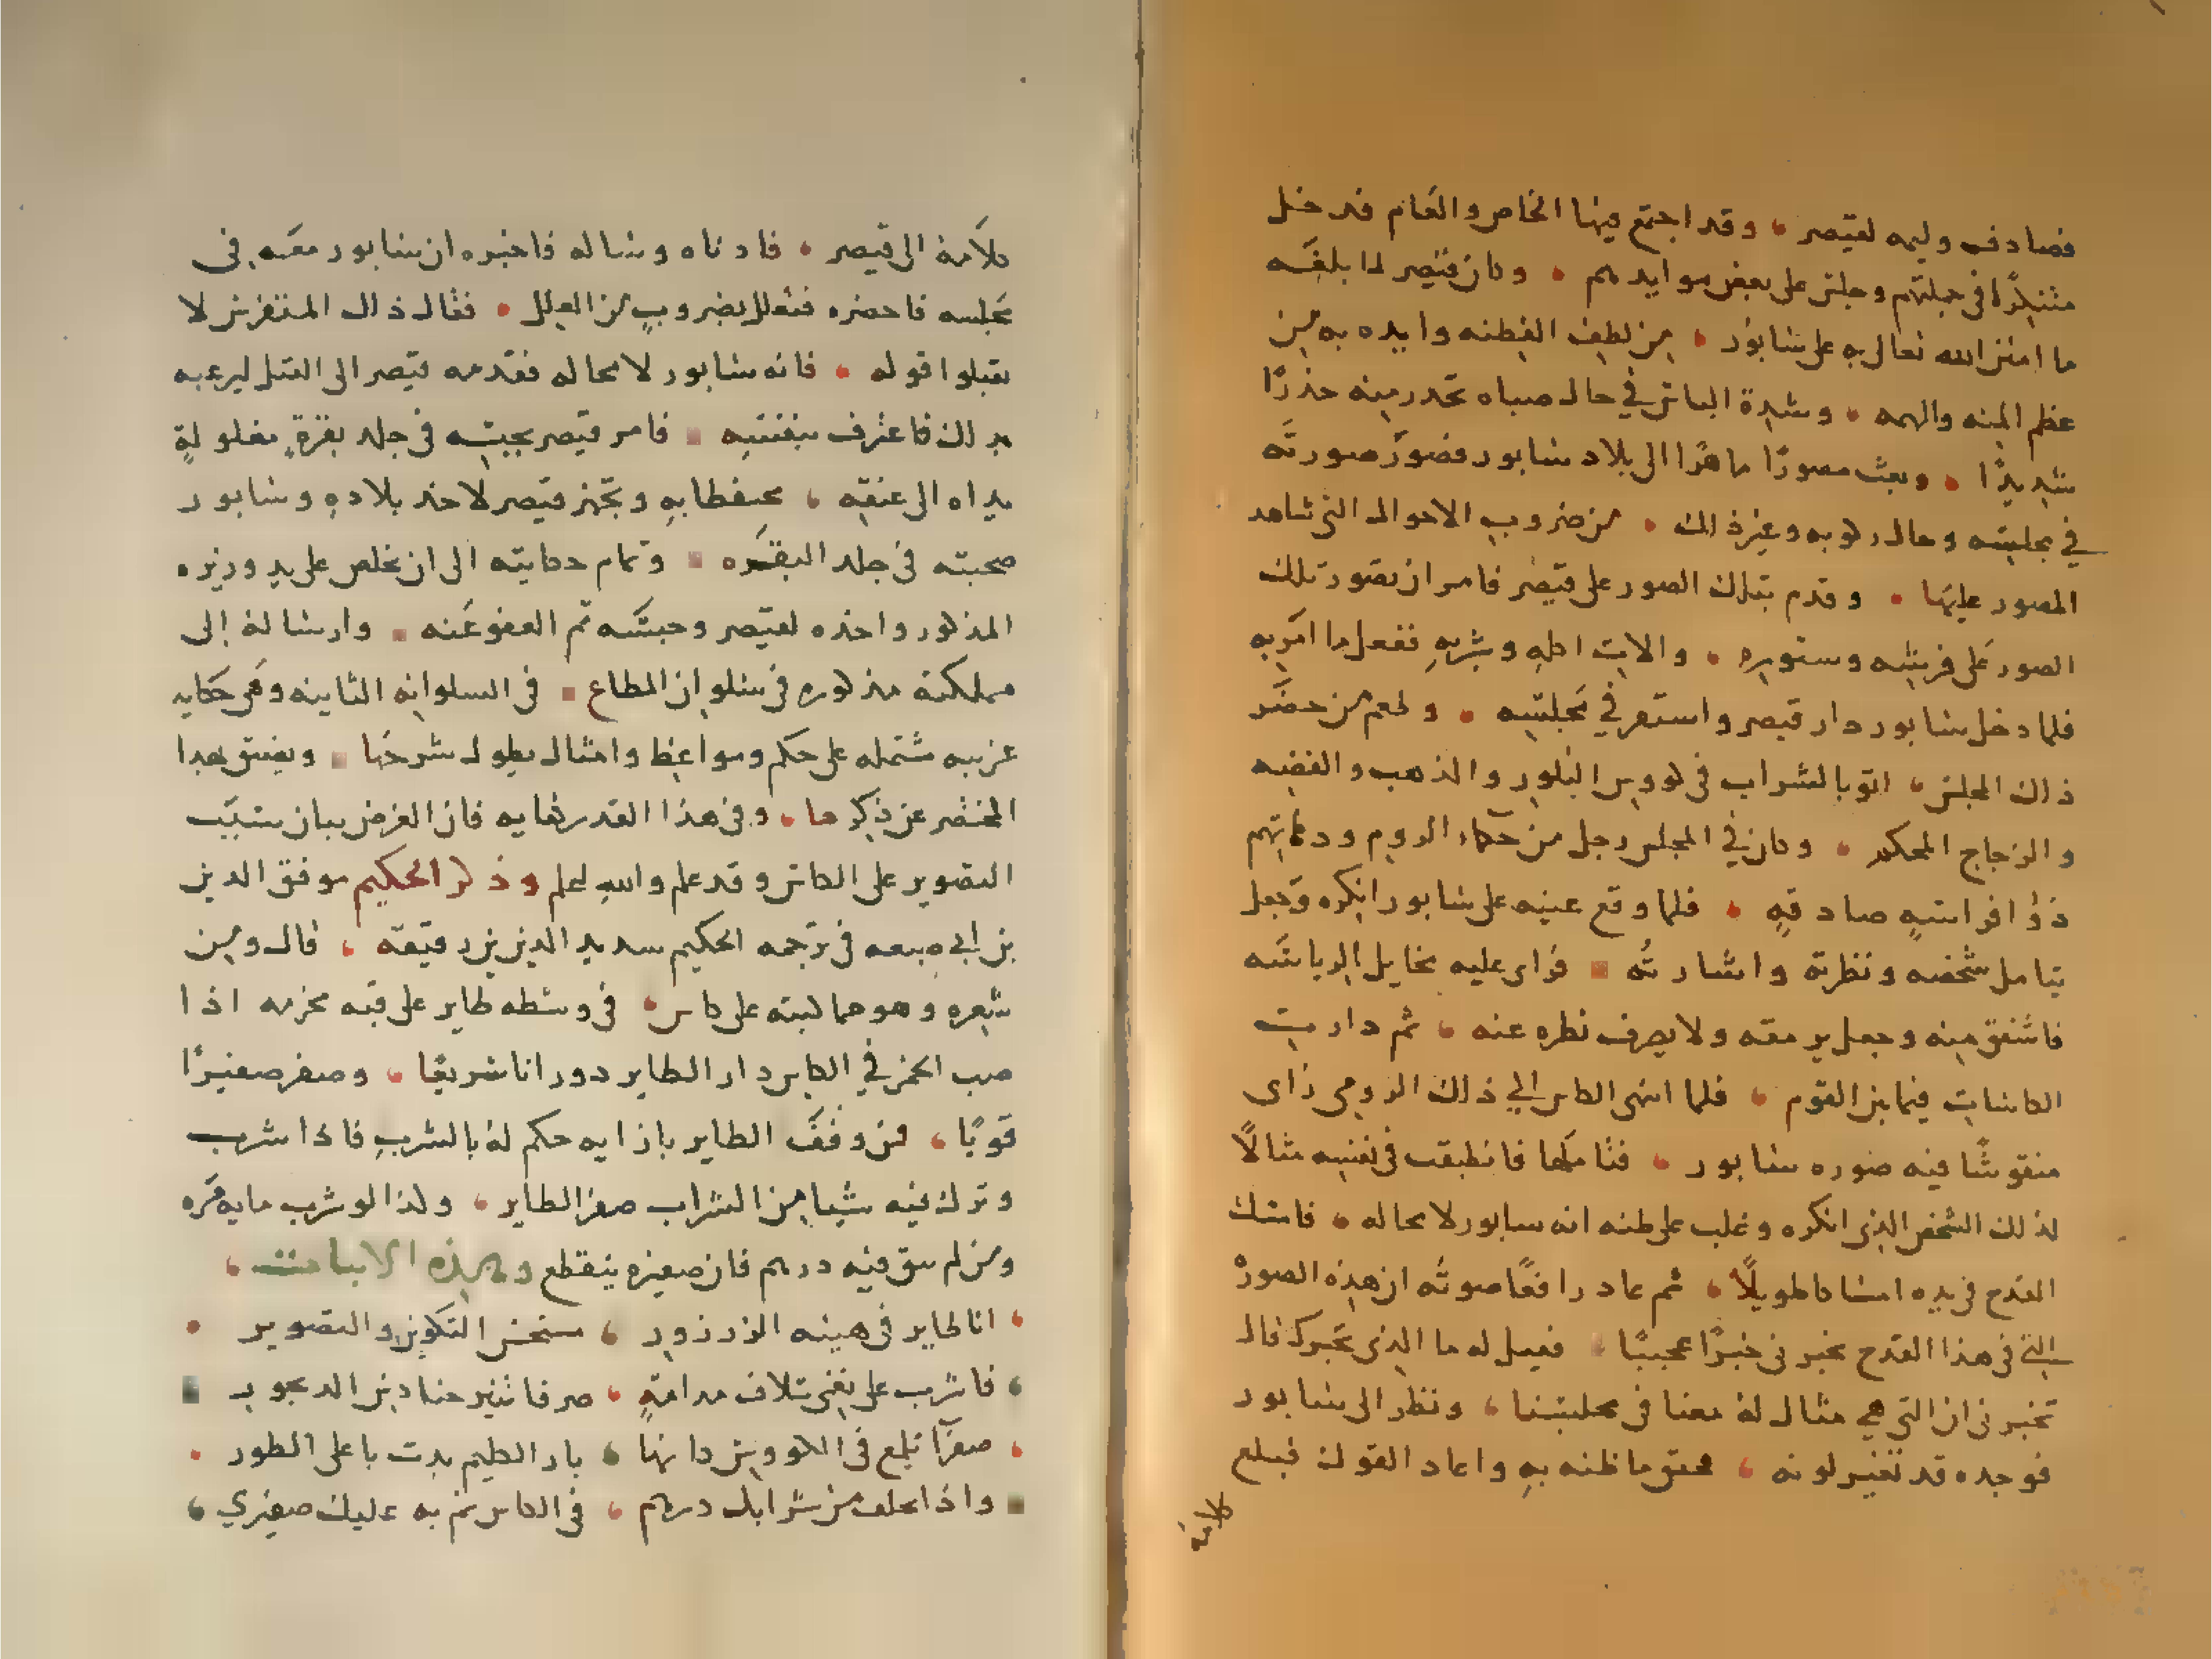 فصادف وليمه لقيصر ، وقد اجتمع فيها الخاص والعام فدخل
متنكرًا في جملتهم وجلس على بعض موايدهم ، وكان قيصر لما بلغه
ما امتن الله تعالى به على شابور ، من لطف الفطنه وايده به من
عظم المنه والهمه ، وشدة الباس في حال صباه تحدر منه حذرًا
شديدًا ، وبعث مصورًا ماهرًا الى بلاد شابور فصوّر صورته
في مجلسه وحال ركوبه وغير ذلك ، من ضروب الاحوال التي شاهد
المصور عليها ، وقدم بتلك الصور على قيصر فامر ان تصور تلك
الصور على فرشه وستوره ، والات اكله وشربه ففعل ما امر به
فلما دخل شابور دار قيصر واستقر في مجلسه ، وطعم من حضر
ذلك المجلس ، اتو بالشراب في كووس البلور والذهب والفضه
والزجاج المحكم ، وكان في المجلس رجل من حكماء الروم ودهاتهم
ذو افراسةٍ صادقةٍ ، فلما وقع عينه على شابور انكره وجعل
يتامل شخصه ونظرته واشارته ، فراى عليه مخايل الرياسه
فاشفق منه وجعل يرمقه ولا يصرف نظره عنه ، ثم دارت
الكاسات فيما بين القوم ، فلما انتهى الكاس الي ذلك الرومي راى
منقوشًا فيه صوره شابور ، فتاملها فانطبقت في نفسه مثالًا
لذلك الشخص الذي انكره وغلب على ظنه انه سابور لا محاله ، فامسك
القدح في يده امساكا طويلًا ، ثم عاد رافعًا صوته ان هذه الصورة
التي في هذا القدح تخبرني خبرًا عجيبًا ، فقيل له ما الذي تخبرك قال
تخبرني ان التي هي مثال له معنا في مجلسنا ، ونظر الى شابور
فوجده قد تغير لونه ، فحقق ما ظنه به واعاد القول فبلغ
كلامه
كلامه الى قيصر ، فادناه وساله فاخبره ان شابور معه في
مجلسه فاحضره فتعلل بضروبٍ من العلل ، فقال ذلك المتفرس لا
تقبلوا قوله ، فانه شابور لا محاله فقدمه قيصر الى القتل ليرعبه
بذلك فاعترف بنفسه ، فامر قيصر بحبسه في جلد بقرةٍ مغلولةٍ
يداه الى عنقه ، محتفظا به وتجهز قيصر لاخذ بلاده وشابور
صحبته في جلد البقره ، وتمام حكايته الى ان تخلص على يد وزيره
المذكور واخذه لقيصر وحبسه ثم العفو عنه ، وارساله إلى
مملكته مذكوره في سلوان المطاع ، في السلوانه الثانيه وهي حكايه
غريبه مشتمله على حكم ومواعظ وامثال يطول شرحها ، ويضيق هدا
المختصر عن ذكرها ، وفي هذا القدر كفايه فان الغرض بيان سبب
التصوير على الكاس وقد علم والله اعلم وذكر الحكيم موفق الدين
بن ابي صبعه في ترجمه الحكيم سديد الدين بن رقيقه ، قال ومن
شعره وهو مما كتبته على كاس ، في وسطه طاير على قبه مخرمه اذا
صب الخمر في الكاس دار الطاير دورانا سريعًا ، وصفر صفيرًا
قويًا ، فمن وقف الطاير بازايه حكم له بالشرب فاذا شرب
وترك فيه شيا من الشراب صفر الطاير ، وكذا لو شرب مايه مره
ومن لم يبق فيه درهم فان صفيره ينقطع وهذه الابيات ،
، انا طاير في هيئه الزرزور ، مستحسن التكوين والتصوير ،
، فاشرب على نغمي سلاف مدامةٍ ، صرفا تنير حنادس الديجور ،
، صفرآ تلمع في الكووس كانها ، نار الكليم بدت باعلى الطور ،
، واذا تخلف من شرابك درهم ، في الكاس نم به عليك صفيري ،